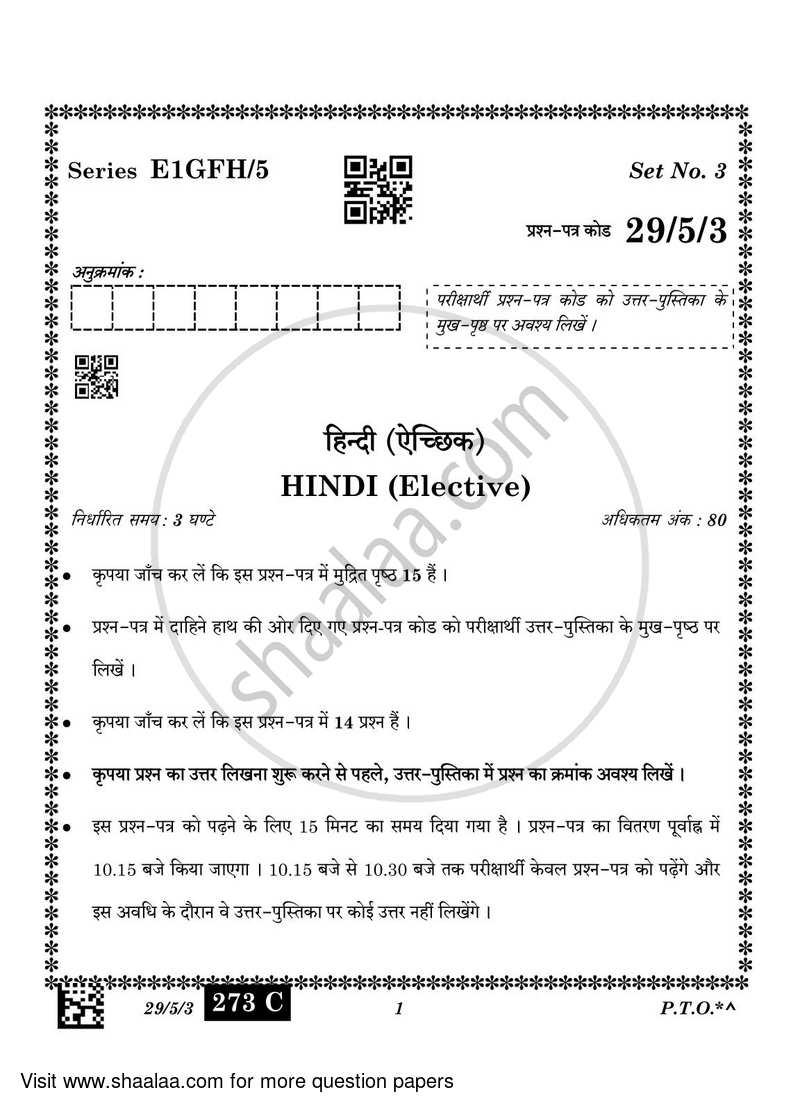 Series E1GFH/5
Set No. 3
प्रश्न-पत्र कोड 29/5/3
अनुक्रमांक :
परीक्षार्थी प्रश्न-पत्र कोड को उत्तर-पुस्तिका के
मुख-पृष्ठ पर अवश्य लिखें ।
हिन्दी (ऐच्छिक)
HINDI (Elective)
निर्धारित समय : 3 घण्टे
अधिकतम अंक : 80
• कृपया जाँच कर लें कि इस प्रश्न-पत्र में मुद्रित पृष्ठ 15 हैं ।
• प्रश्न-पत्र में दाहिने हाथ की ओर दिए गए प्रश्न-पत्र कोड को परीक्षार्थी उत्तर-पुस्तिका के मुख-पृष्ठ पर
लिखें ।
• कृपया जाँच कर लें कि इस प्रश्न-पत्र में 14 प्रश्न हैं ।
• कृपया प्रश्न का उत्तर लिखना शुरू करने से पहले, उत्तर-पुस्तिका में प्रश्न का क्रमांक अवश्य लिखें ।
• इस प्रश्न-पत्र को पढ़ने के लिए 15 मिनट का समय दिया गया है । प्रश्न-पत्र का वितरण पूर्वाह्न में
10.15 बजे किया जाएगा । 10.15 बजे से 10.30 बजे तक परीक्षार्थी केवल प्रश्न-पत्र को पढ़ेंगे और
इस अवधि के दौरान वे उत्तर-पुस्तिका पर कोई उत्तर नहीं लिखेंगे ।
shaalaa.com
29/5/3 273 C 1 P.T.O.*^
Visit www.shaalaa.com for more question papers